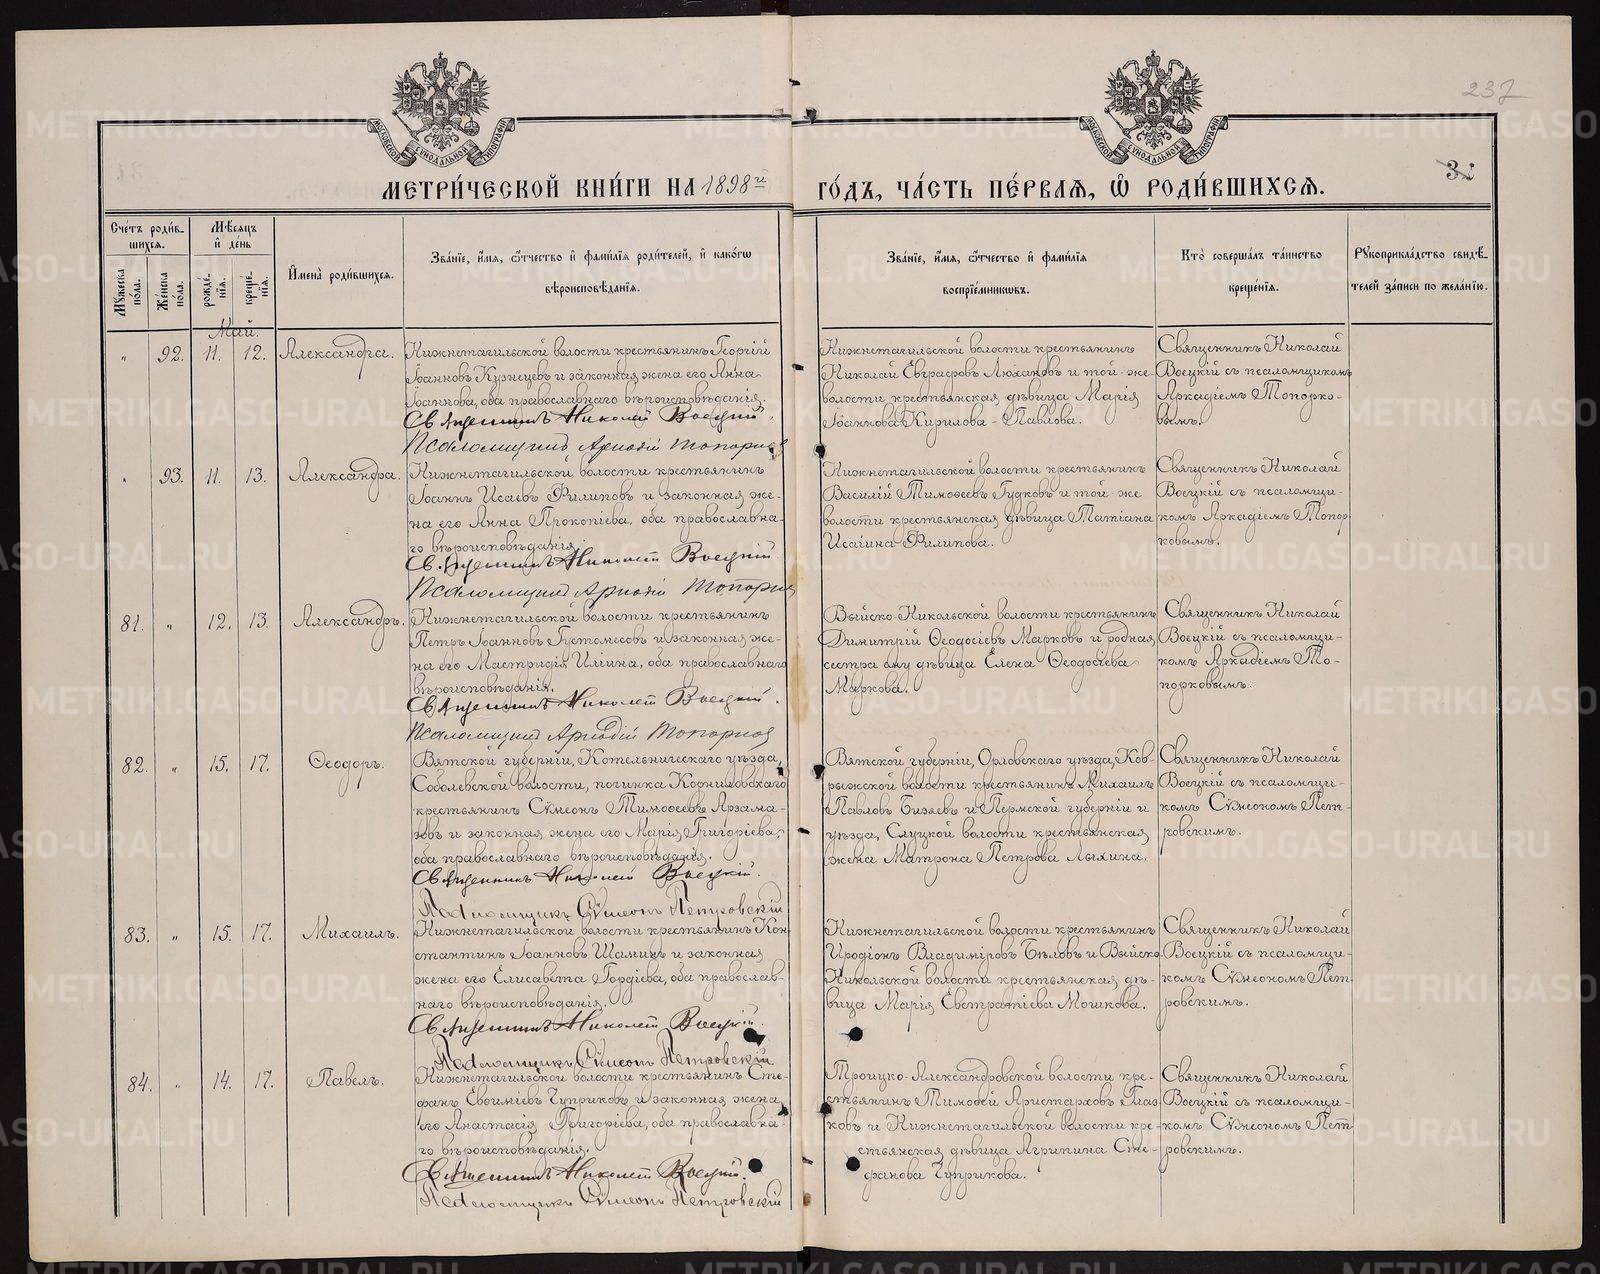 237
МОСКОВСКОЙ СУНОДАЛЬНОЙ ТИПОГРАФІИ
МОСКОВСКОЙ СУНОДАЛЬНОЙ ТИПОГРАФІИ
МЕТРИ́ЧЕСКОЙ КНИ́ГИ НА 1898й ГО́ДЪ, ЧА́СТЬ ПЕ́РВАЯ, Ѡ РОДИ́ВШИХСЯ.
Сче́тъ роди́в-
шихся.
Мѣ́сяцъ
и҆ де́нь
Мꙋжеска пола.
Же́нска по́ла.
рожде́-
нїѧ.
креще́-
нїѧ.
И҆мена̀ роди́вшихся.
Зва́нїе, и҆́мя, ѻ҆́тчество и҆ фами́лїя роди́телей, и҆ како́гѡ
вѣроисповѣ́данїя.
Зва́нїе, и҆́мя, ѻ҆́тчество и҆ фами́лїя
воспрїе́мникѡвъ.
Кто̀ соверша́лъ та́инство
креще́нїя.
Рꙋкоприкла́дство свидѣ́-
телей за́писи по жела́нїю.
Май.
„ 92. 11. 12. Александра.
Нижнетагильской волости крестьянинъ Георгій
Іоанновъ Кузнецовъ и законная жена его Анна
Іоаннова, оба православнаго вѣроисповѣданія.
Священникъ Николай Воецкій.
Псаломщикъ Аркадій Топорков
Нижнетагильской волости крестьянинъ
Николай Евграфовъ Люхановъ и той-же
волости крестьянская дѣвица Марія
Іоаннова Кирилова-Павлова.
Священникъ Николай
Воецкій съ псаломщикомъ
Аркадіемъ Топорко-
вымъ.
„ 93. 11. 13. Александра.
Нижнетагильской волости крестьянинъ
Іоаннъ Исаевъ Филиповъ и законная же-
на его Анна Прокопіева, оба православна-
го вѣроисповѣданія.
Священникъ Николай Воецкій
Псаломщикъ Аркадій Топорков
Нижнетагильской волости крестьянинъ
Василій Тимоѳеевъ Гудковъ и той-же
волости крестьянская дѣвица Татіана
Исаіина Филипова.
Священникъ Николай
Воецкій съ псаломщи-
комъ Аркадіемъ Топор-
ковымъ.
81. „ 12. 13. Александръ.
Нижнетагильской волости крестьянинъ
Петръ Іоанновъ Густомесовъ и законная же-
на его Мастридія Иліина, оба православнаго
вѣроисповѣданія.
Священникъ Николай Воецкій.
Псаломщикъ Аркадій Топорков
Выйско-Никольской волости крестьянинъ
Димитрій Ѳеодосіевъ Марковъ и родная
сестра ему дѣвица Елена Ѳеодосіева
Маркова.
Священникъ Николай
Воецкій съ псаломщи-
комъ Аркадіемъ То-
порковымъ.
82. „ 15. 17. Ѳеодоръ.
Вятской губерніи, Котельническаго уѣзда,
Соболевской волости, починка Корниловскаго
крестьянинъ Сѵмеонъ Тимоѳеевъ Арзама-
зовъ и законная жена его Марія Григоріева,
оба православнаго вѣроисповѣданія.
Священникъ Николай Воецкій.
Псаломщикъ Сѵмеонъ Петровскій
Вятской губерніи, Орловскаго уѣзда, Ков-
рыжской волости крестьянинъ Михаилъ
Павловъ Бизяевъ и Пермской губерніи и
уѣзда, Слуцкой волости крестьянская
жена Матрона Петрова Лыхина.
Священникъ Николай
Воецкій съ псаломщи-
комъ Сѵмеономъ Пет-
ровскимъ.
83. „ 15. 17. Михаилъ.
Нижнетагильской волости крестьянинъ Кон-
стантинъ Іоанновъ Шаминъ и законная
жена его Елисавета Гордіева, оба православ-
наго вѣроисповѣданія.
Священникъ Николай Воецкій.
Псаломщикъ Сѵмеонъ Петровскій
Нижнетагильской волости крестьянинъ
Иродіонъ Владиміровъ Бѣловъ и Выйско
Никольской волости крестьянская дѣ-
вица Марія Евстратіева Мошкова.
Священникъ Николай
Воецкій съ псаломщи-
комъ Сѵмеономъ Пет-
ровскимъ.
84. „ 14. 17. Павелъ.
Нижнетагильской волости крестьянинъ Сте-
фанъ Евѳиміевъ Чуприковъ и законная жена
его Анастасія Григоріева, оба православна-
го вѣроисповѣданія.
Священникъ Николай Воецкій.
Псаломщикъ Сѵмеонъ Петровскій
Троицко-Александровской волости кре-
стьянинъ Тимоѳей Аристарховъ Глаз-
ковъ и Нижнетагильской волости кре-
стьянская дѣвица Агрипина Сте-
фанова Чуприкова.
Священникъ Николай
Воецкій съ псаломщи-
комъ Сѵмеономъ Пет-
ровскимъ.
METRIKI.GASO-URAL.RU